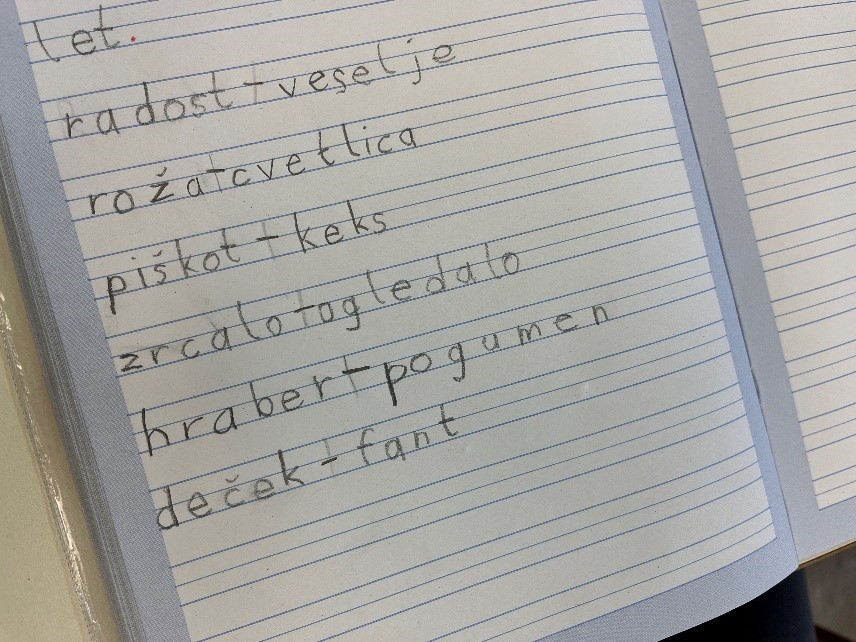 let.
radost - veselje
roža - cvetlica
piškot - keks
zrcalo - ogledalo
hraber - pogumen
deček - fant